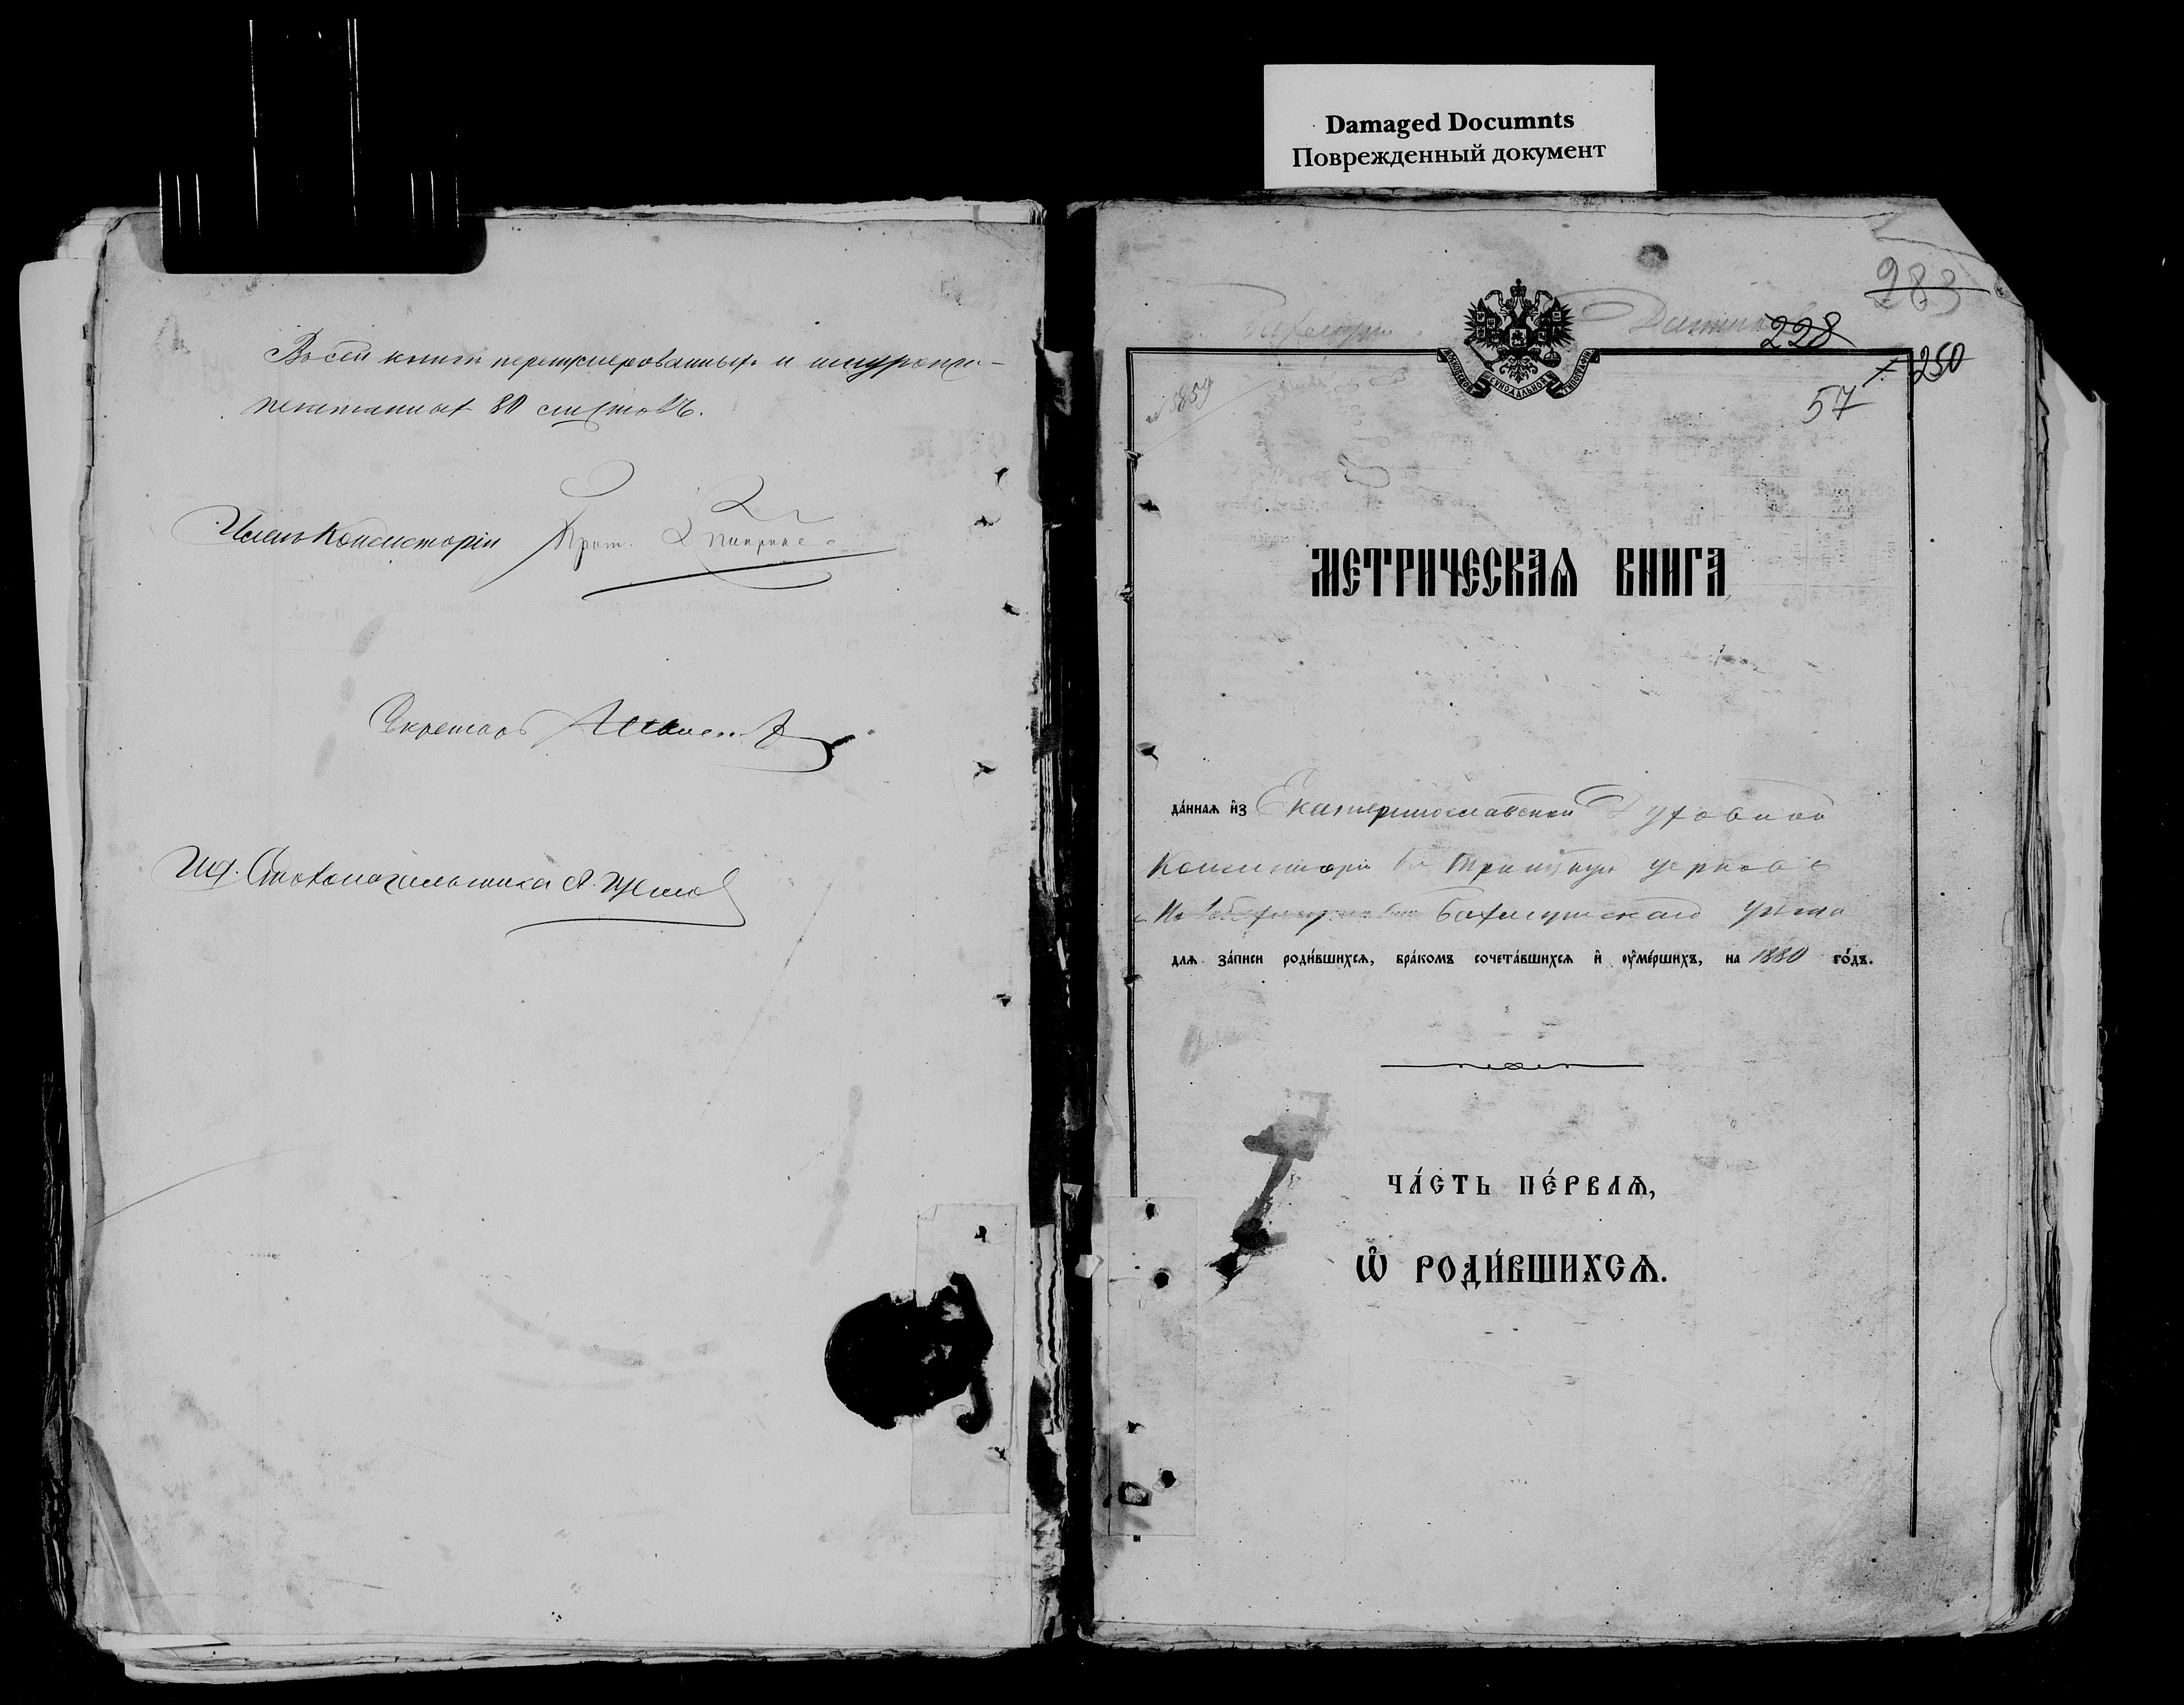 Damaged Documnts
Поврежденный документ
Въ сей книгѣ перенумерованныхъ и шнуропри-
печатанныхъ 80 листовъ.
Членъ Консисторіи Прот.
Секретарь
Столоначальника А.
283
228
250
57
№ 3859
МОСКОВСКОЙ СѴНОДАЛЬНОЙ ТИПОГРАФІИ
МЕТРИЧЕСКАѦ КНИГА
да́ннаѧ и҆з Екатеринославской Духовной
Консисторіи въ Троицкую церковь
Бахмутскаго уѣзда
длѧ за́писи роди́вшихсѧ, бра́комъ сочета́вшихсѧ и҆ ᲂу҆ме́ршихъ, на 1880 го́дъ.
ЧА́СТЬ ПЕ́РВАѦ,
Ѡ҆ РОДИ́ВШИХСѦ.